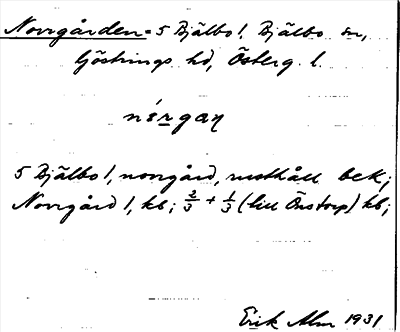 Norrgården = 5 Bjälbo!, Bjälbo sn,
Göstrings hd, Österg. l.
nərgaɳ
5 Bjälbo!, norrgård, rusthåll bek;
Norrgård 1, kb; 2/3 + 1/3 (till Önstorp) kb;
Erik Alm 1931